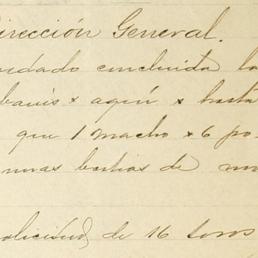 Dirección General.
cuidado concluida la
aquí x hasta
que 1 macho x 6 po
unas bestias de
solicitud, de 16 toros